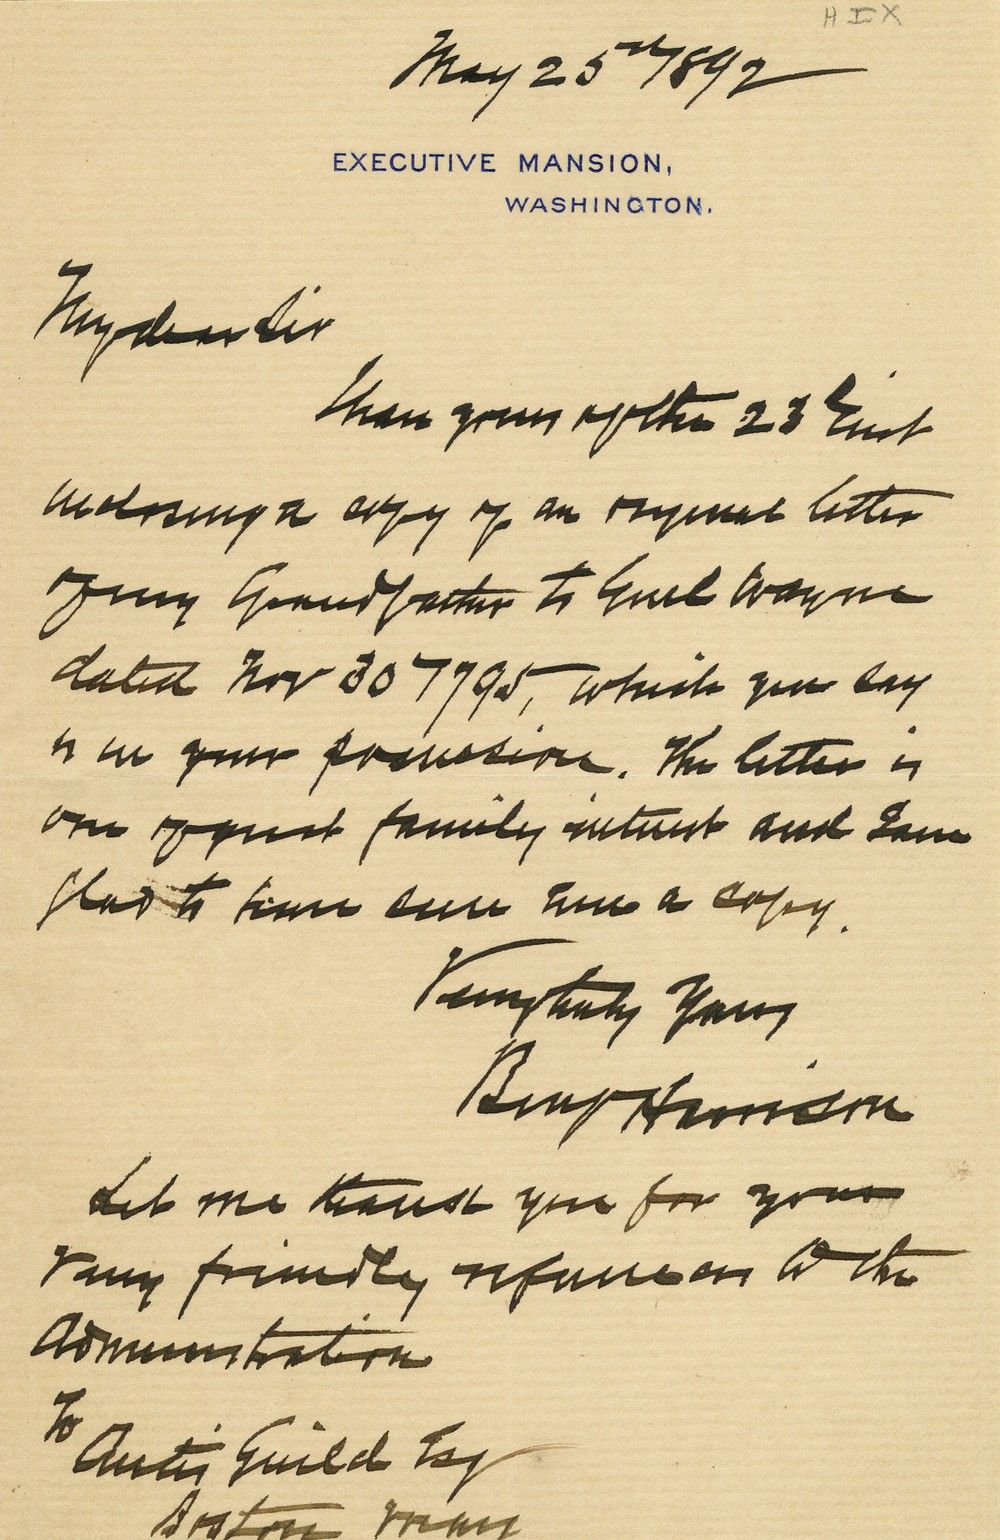 H I X
May 25th 1892
EXECUTIVE MANSION,
WASHINGTON.
My dear Sir
I have yours of the 23d inst
inclosing a copy of an original letter
of my Grandfather to Genl Wayne
dated Nov 30 1795, which you say
is in your possession. The letter is
one of great family interest and I am
glad to have a copy.
Very truly Yours
Benj Harrison
Let me thank you for your
very friendly references to the
Administration
To
Curtis Guild Esq
Boston Mass